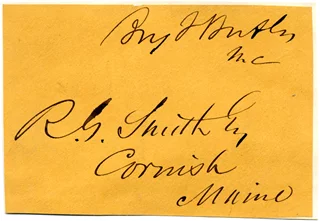 Benj F Butler
MC
R. G. Smith Esq
Cornish
Maine